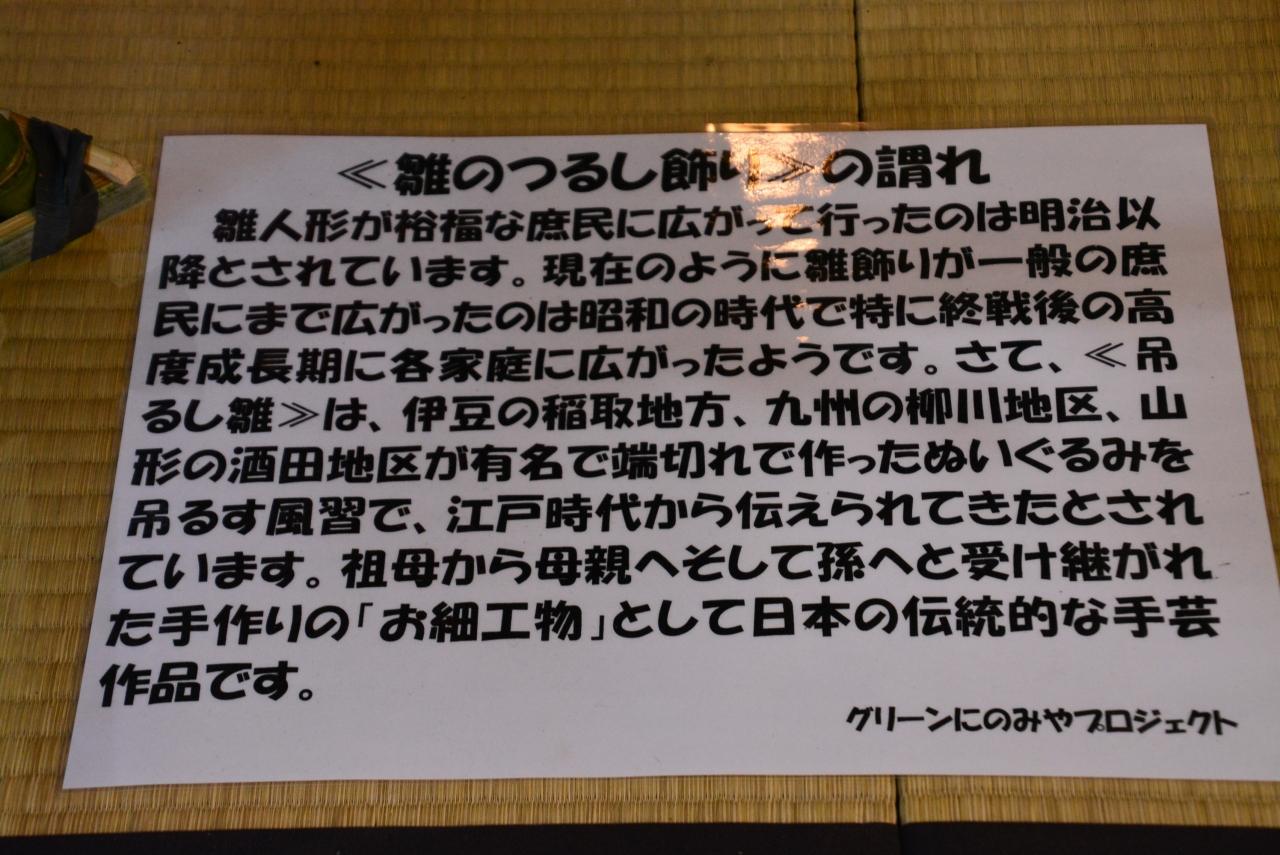 ≪雛のつるし飾り≫の謂れ
雛人形が裕福な庶民に広がって行ったのは明治以
降とされています。現在のように雛飾りが一般の庶
民にまで広がったのは昭和の時代で特に終戦後の高
度成長期に各家庭に広がったようです。さて、≪吊
るし雛≫は、伊豆の稲取地方、九州の柳川地区、山
形の酒田地区が有名で端切れで作ったぬいぐるみを
吊るす風習で、江戸時代から伝えられてきたとされ
ています。祖母から母親へそして孫へと受け継がれ
た手作りの「お細工物」として日本の伝統的な手芸
作品です。
グリーンにのみやプロジェクト